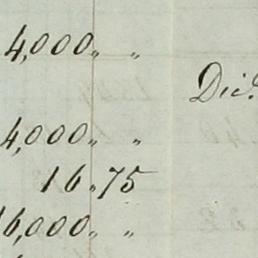 4,000 〃 〃
Dic.
4,000 〃 〃
16 〃 75
16,000 〃 〃